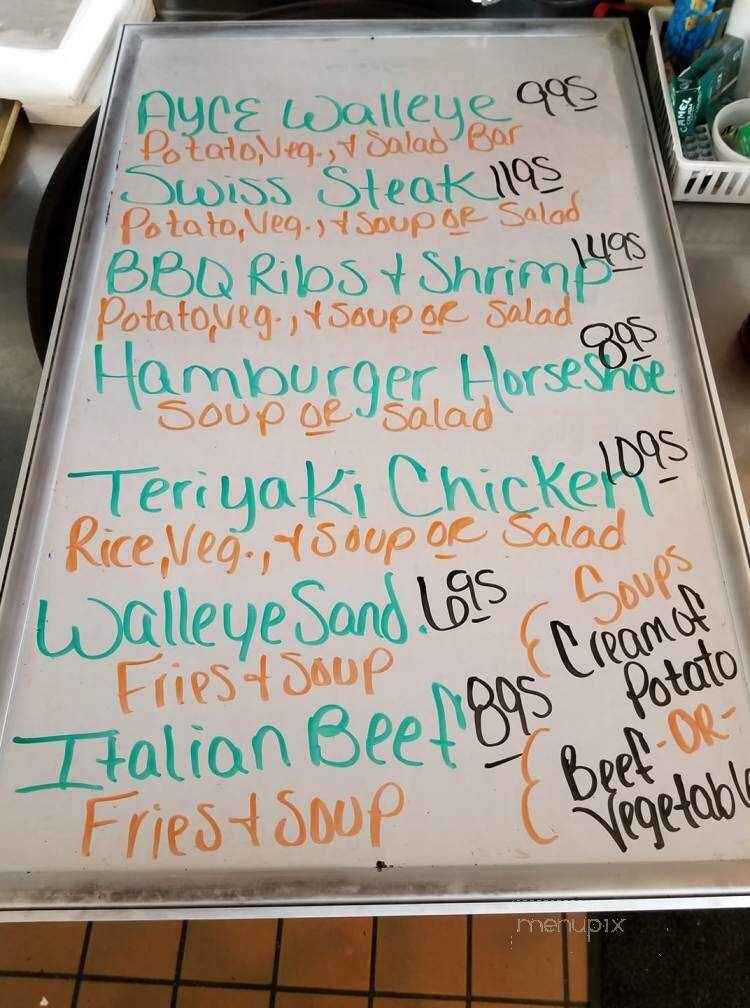 AYCE Walleye 995
Potato, Veg., + Salad Bar
Swiss Steak 1195
Potato, Veg., + Soup OR Salad
BBQ Ribs + Shrimp 1495
Potato, Veg., + Soup OR Salad
Hamburger Horseshoe 895
Soup OR Salad
Teriyaki Chicken 1095
Rice, Veg., + Soup OR Salad
Walleye Sand. 695
Fries + Soup
Italian Beef 895
Fries + Soup
Soups
Cream of
Potato
-OR-
Beef
Vegetabl
CAMEL
menupix